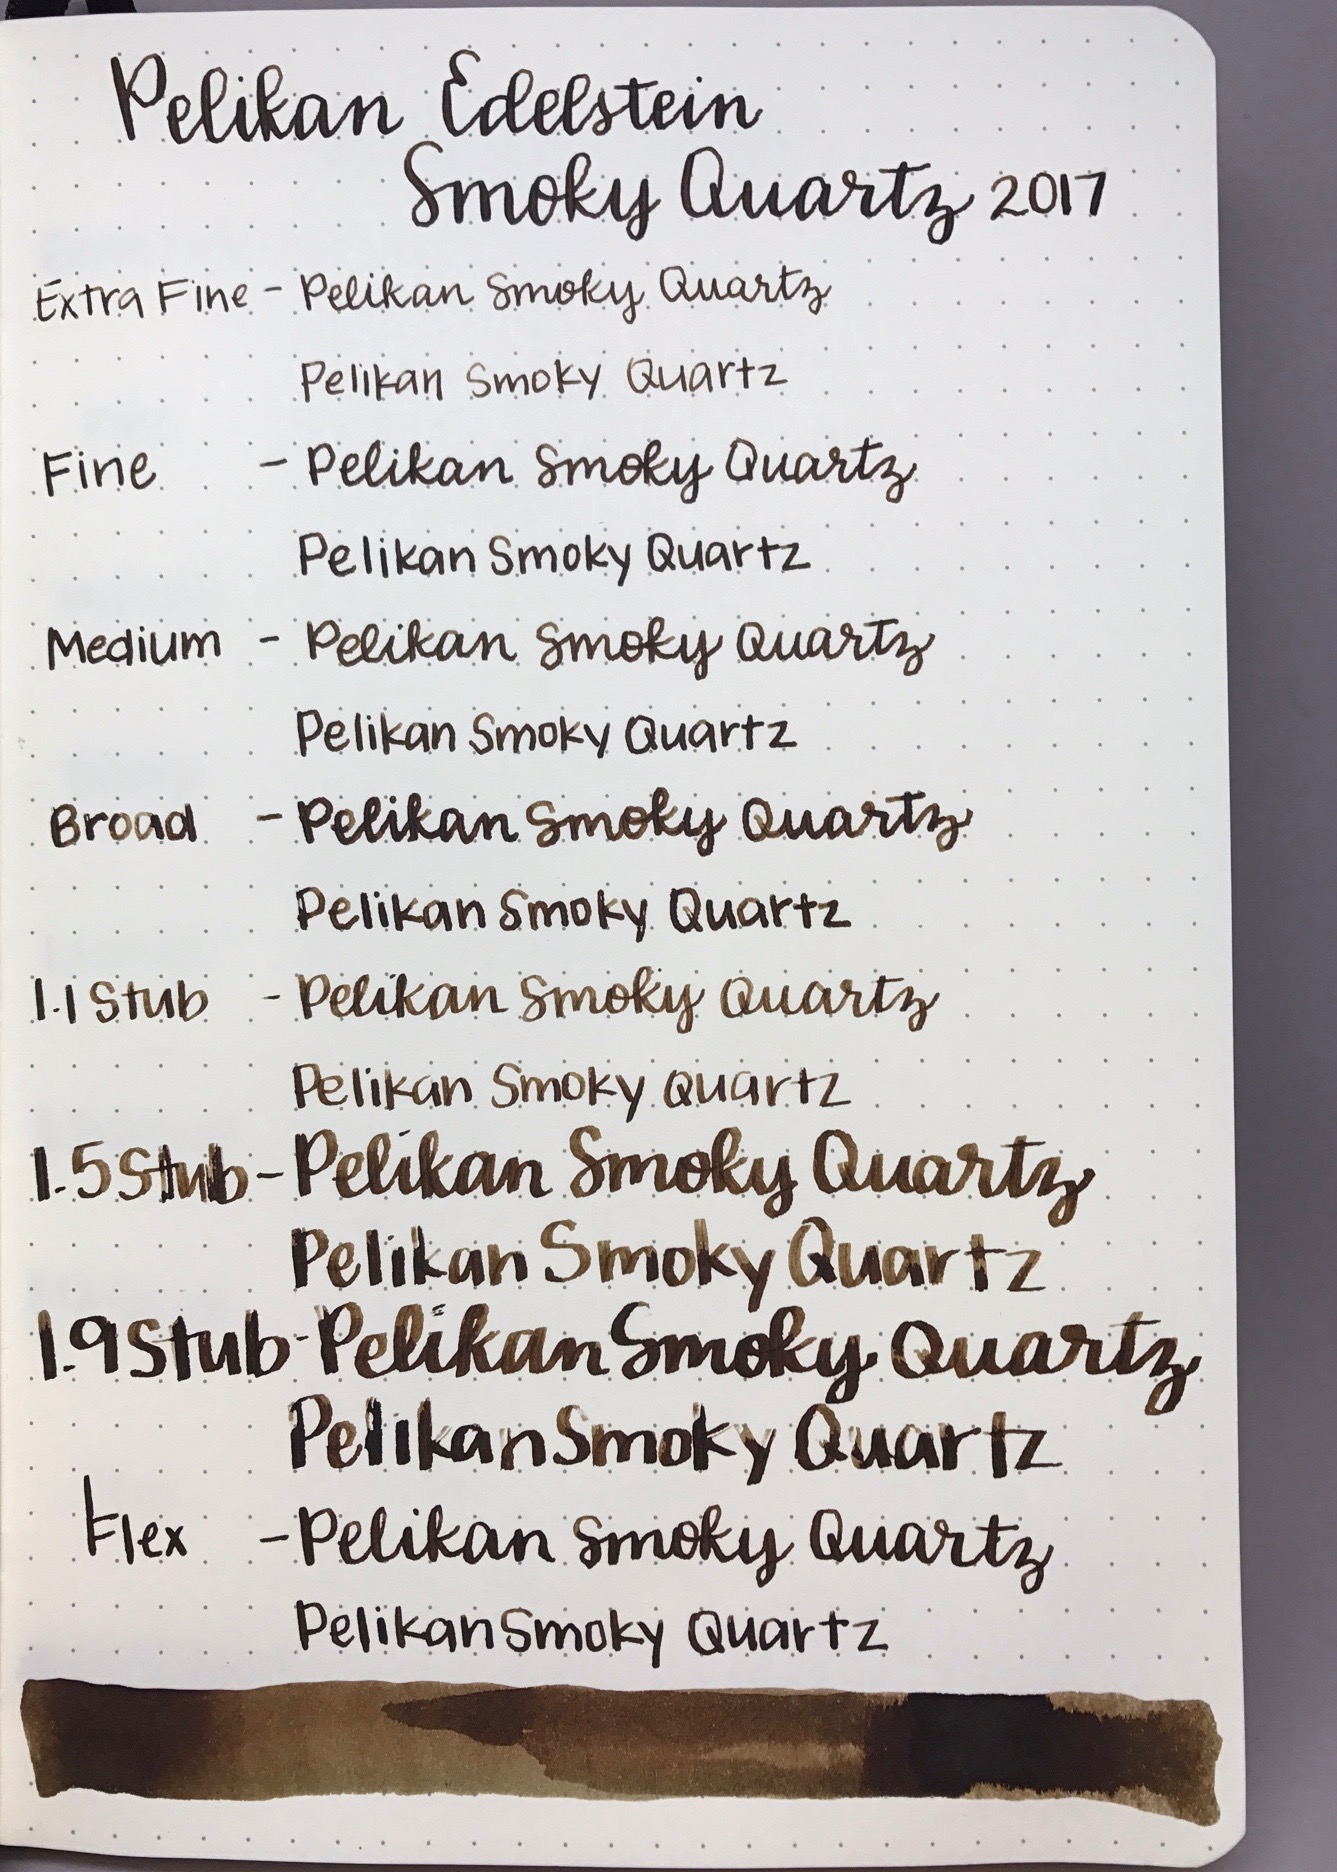 Pelikan Edelstein
Smoky Quartz 2017
Extra Fine - Pelikan Smoky Quartz
Pelikan Smoky Quartz
Fine - Pelikan Smoky Quartz
Pelikan Smoky Quartz
Medium - Pelikan Smoky Quartz
Pelikan Smoky Quartz
Broad - Pelikan Smoky Quartz
Pelikan Smoky Quartz
1.1 Stub - Pelikan Smoky Quartz
Pelikan Smoky Quartz
1.5 Stub - Pelikan Smoky Quartz
Pelikan Smoky Quartz
1.9 Stub - Pelikan Smoky Quartz
Pelikan Smoky Quartz
Flex - Pelikan Smoky Quartz
Pelikan Smoky Quartz